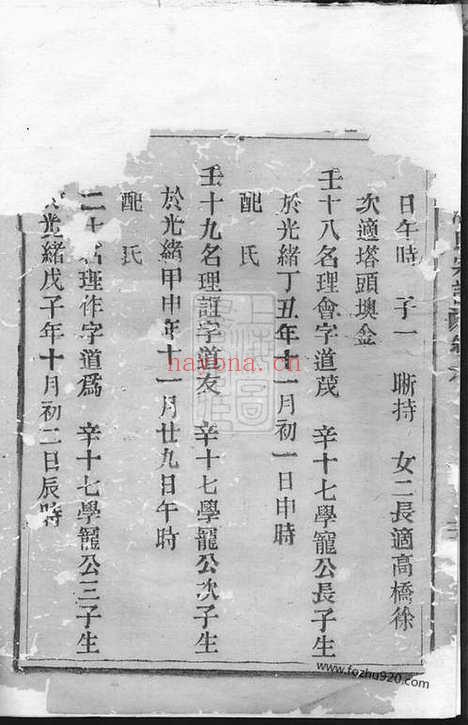 日午時 子一 晰持 女二長適高橋徐
次適塔頭墺金
壬十八名理會字道茂 辛十七學寵公長子生
於光緒丁丑年十一月初一日申時
配氏
壬十九名理誑字道友 辛十七學寵公次子生
於光緒甲申年十一月廿九日午時
配氏
二十名理作字道爲 辛十七學寵公三子生
光緒戊子年十月初二日辰時
nayona.cn
www.fozhu920.com